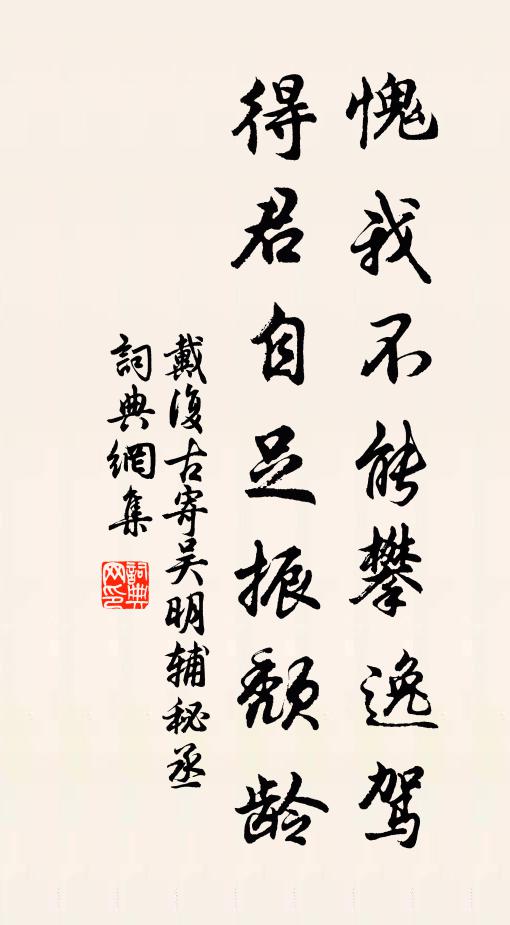 愧我不能攀逸驾
得君自足振颓龄
戴復古寄吴明辅秘丞
詞典網集
詞典网印